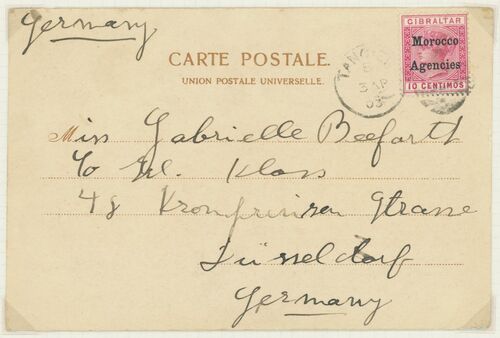 Germany
CARTE POSTALE.
UNION POSTALE UNIVERSELLE.
GIBRALTAR
Morocco
Agencies
10 CENTIMOS
TANGIER
3 AP
03
Miss Gabrielle Beeforth
c/o Frl. Klass
48 Kronprinzen Strasse
Düsseldorf
Germany